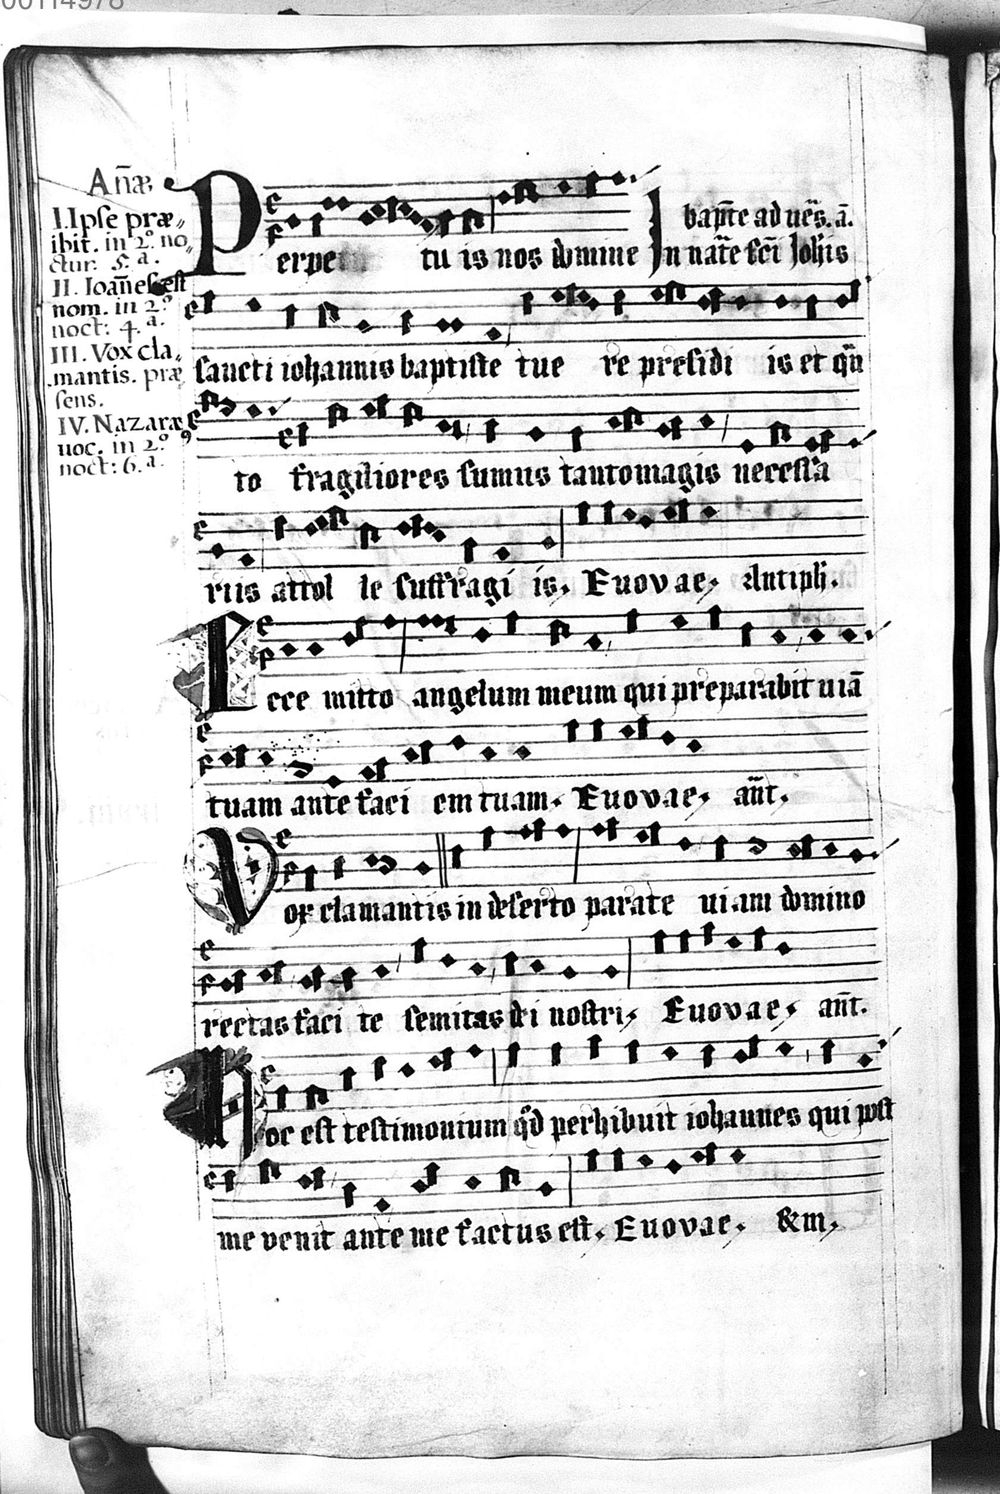 00114978
Añæ
I. Ipse præ„
ibit. in 2º. no„
ctur: 5.ª.
II. Ioan̄es est
nom. in 2º
noct: 4.ª.
III. Vox cla„
mantis. præ
sens.
IV. Nazaræ
noc. in 2º.
noct: 6.ª.
Perpe tu is nos domine
bapt̄e ad ues̄. a̅.
In nat̄e sc̄i Joh̄is
sancti iohannis baptiste tue re presidi is et qū
to fragiliores sumus tanto magis necessa
riis attol le suffragi is. Euovae, Antiph.
Ecce mitto angelum meum qui preparabit uiā
tuam ante faci em tuam. Euovae, an̄t.
Vox clamantis in deserto parate uiam domino
rectas faci te semitas dei nostri, Euovae, an̄t.
Hoc est testimonium qd̄ perhibuit iohannes qui post
me venit ante me factus est. Euovae. &m,